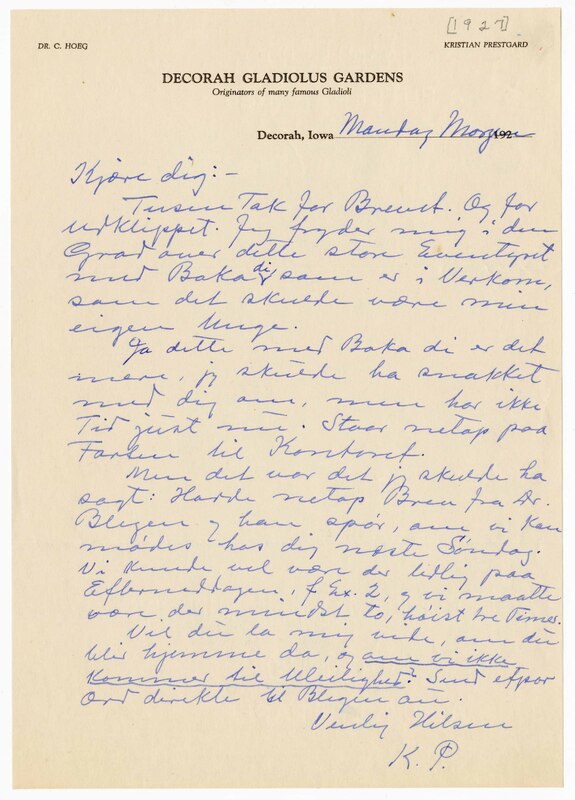 [1927]
DR. C. HOEG
KRISTIAN PRESTGARD
DECORAH GLADIOLUS GARDENS
Originators of many famous Gladioli
Decorah, Iowa Mandag Morgen 192
Kjære dig:-
Tusen Tak for Brevet. Og for
udklippet. Jeg fryder mig i den
Grad over dette store Eventyret
med Boka di, som er i Verkom,
som det skulde være min
eigen Unge.
Ja dette med Boka di er det
mere, jeg skulde ha snakket
med dig om, men har ikke
Tid just nu. Staar netop paa
Farten til Kontoret.
Men det var det jeg skulde ha
sagt: Hadde netop Brev fra Dr.
Blegen og han spør, om vi kan
mødes hos dig næste Søndag.
Vi kunde vel være der tidlig paa
Eftermeddagen, f Ex. 2, og vi maatte
være der mindst to, høist tre Timer.
Vil du la mig vide, om du
blir hjemme da, og om vi ikke
kommer til Uleilighed? Send
Ord direkte til Blegen
Venlig Hilsen
K. P.